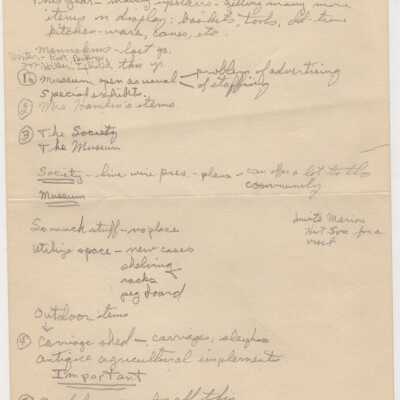 This year - moving upstairs - getting many more
items on display: baskets, tools, old time
kitchen-ware, canes, etc.
Mannekins - last yr.
this yr.
1a Museum open as usual - problem of advertising
of staffing
Special exhibits.
2 Mrs Hamlin's items
3 The Society
The Museum
Society - live wire pres. - plans - can offer a lot to the
community
Museum
So much stuff - no place
Utilize space - new cases
shelving
racks
peg board
Invite Marion
for a
visit
Outdoor items
4 Carriage shed - carriages, sleighs
antique agricultural implements
Important
all this